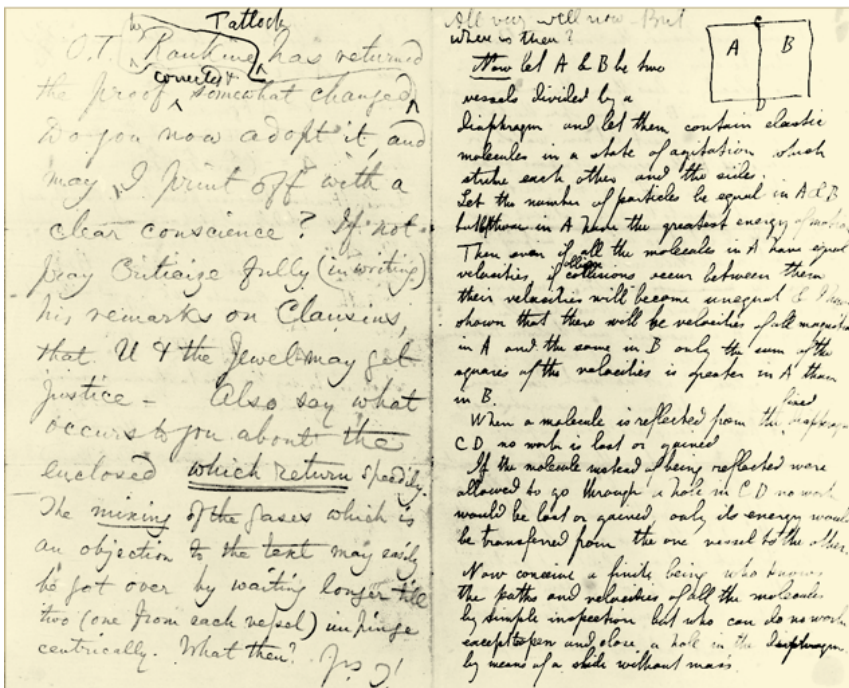 by Tatlock
O.T. Rankine has returned
corrected &
the proof somewhat changed
Do you now adopt it, and
may I print off with a
clear conscience? If not
pray Criticize fully (in writing)
his remarks on Clausius,
that U & the Jewel may get
justice - Also say what
occurs to you about the
enclosed which return speedily.
The mixing of the gases which is
an objection to the text may easily
be got over by waiting longer till
two (one from each vessel) impinge
centrically. What then? Yrs T'
All very well now - But
where is then?
A B
Now let A & B be two
vessels divided by a
diaphragm and let them contain elastic
molecules in a state of agitation which
strike each other and the sides.
Let the number of particles be equal in A & B
but those in A have the greatest energy of motion
Then even if all the molecules in A have equal
velocities if collisions occur between them
their velocities will become unequal & I have
shown that there will be velocities of all magnitudes
in A and the same in B only the sum of the
squares of the velocities is greater in A than
in B.
When a molecule is reflected from the fixed diaphragm
C D no work is lost or gained
If the molecule instead of being reflected were
allowed to go through a hole in C D no work
would be lost or gained, only its energy would
be transferred from the one vessel to the other.
Now conceive a finite being who knows
the paths and velocities of all the molecules
by simple inspection but who can do no work
except open and close a hole in the diaphragm
by means of a slide without mass.